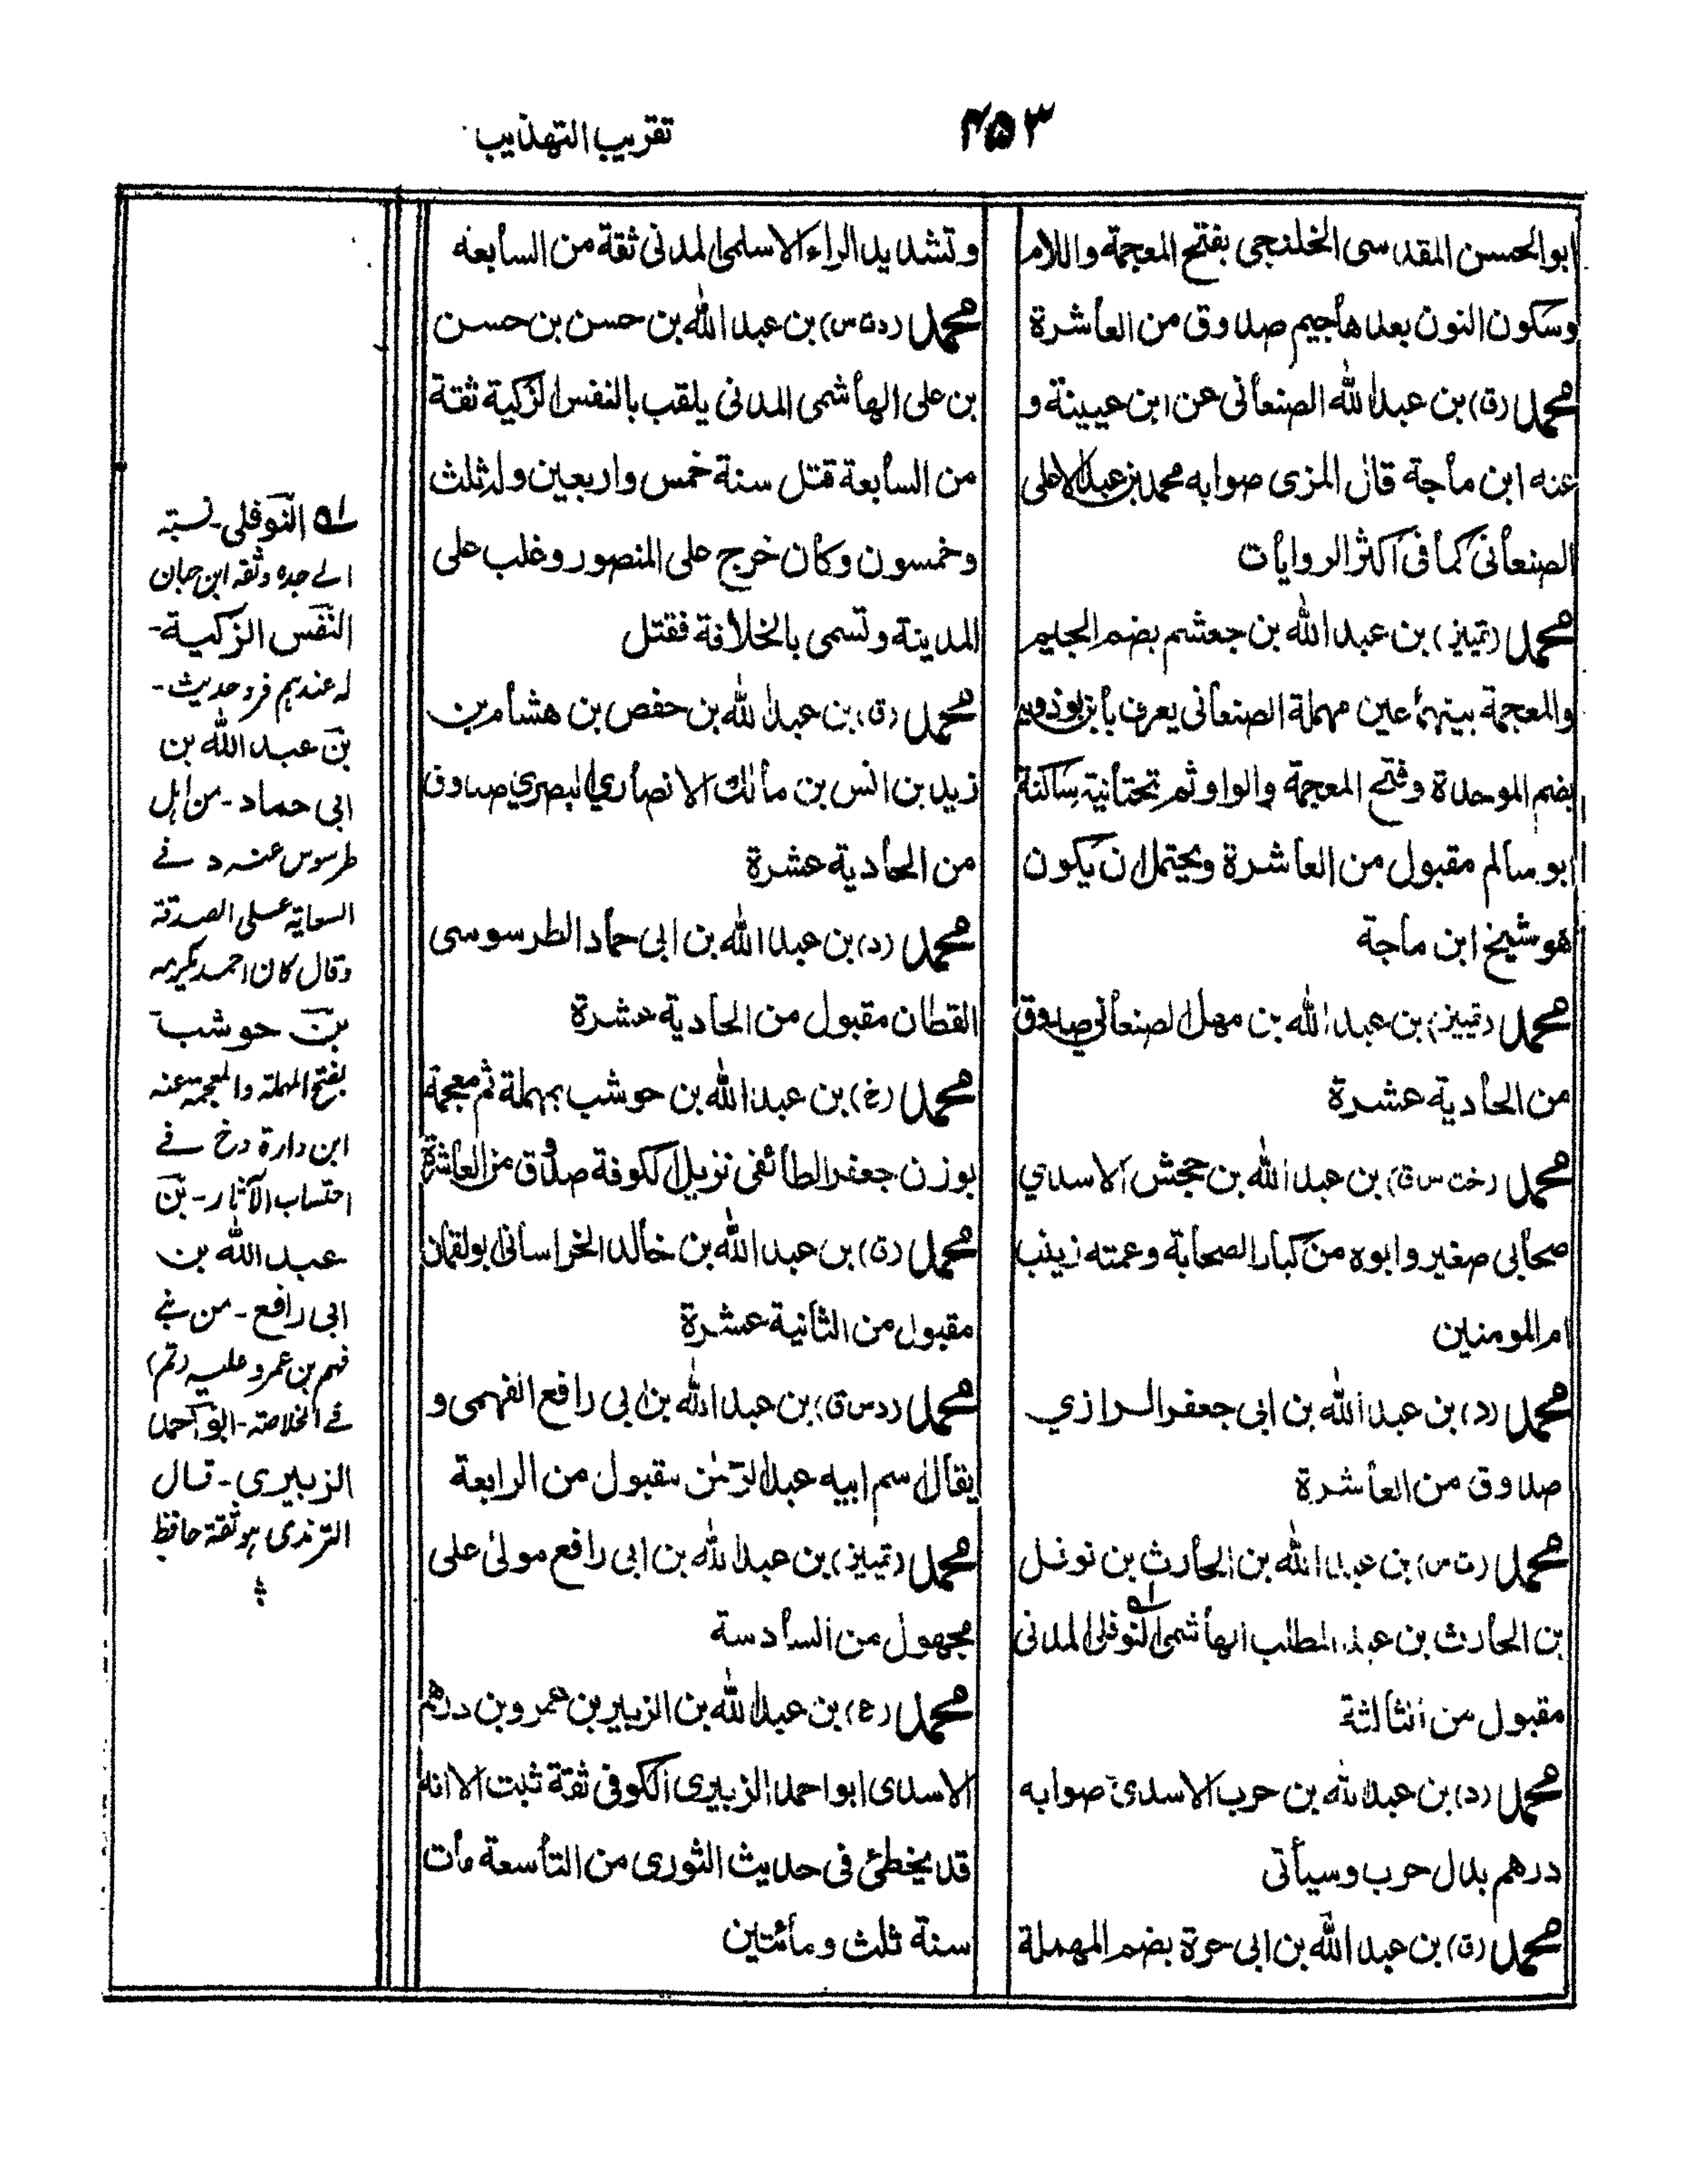 ۴۵۳
تقريب التهذيب
ابوالحسن المقدسى الخلنجى بفتح المعجمة واللام
وسكون النون بعدها جيم صدوق من العاشرة
محمد (ق) بن عبد الله الصنعانى عن ابن عيينة و
عنه ابن ماجة قال المزى صوابه محمد بن عبد الاعلى
الصنعانى كما فى اكثر الروايات
محمد (تمييز) بن عبد الله بن جعشم بضم الجيم
والمعجمة بينهما عين مهملة الصنعانى يعرف بابن بوذويه
بضم الموحدة وفتح المعجمة والواو ثم تحتانية ساكنة
ابو سالم مقبول من العاشرة ويحتمل ان يكون
هو شيخ ابن ماجة
محمد (تمييز) بن عبد الله بن مهل الصنعانى صدوق
من الحادية عشرة
محمد (خت س ق) بن عبد الله بن جحش الاسدي
صحابى صغير وابوه من كبار الصحابة وعمته زينب
ام المومنين
محمد (د) بن عبد الله بن ابى جعفر الرازي
صدوق من العاشرة
محمد (ت س) بن عبد الله بن الحارث بن نوفل
بن الحارث بن عبد المطلب الهاشمى النوفلى المدنى
مقبول من الثالثة
محمد (د) بن عبد الله بن حرب الاسدى صوابه
درهم بدل حرب وسيأتى
محمد (ق) بن عبد الله بن ابى حرة بضم المهملة
وتشديد الراء الاسلمى المدنى ثقة من السابعة
محمد (د ت س) بن عبد الله بن حسن بن حسن
بن على الهاشمى المدنى يلقب بالنفس الزكية ثقة
من السابعة قتل سنة خمس واربعين وله ثلث
وخمسون وكان خرج على المنصور وغلب على
المدينة وتسمى بالخلافة فقتل
محمد (ق) بن عبد الله بن حفص بن هشام بن
زيد بن انس بن مالك الانصاري البصري صدوق
من الحادية عشرة
محمد (د) بن عبد الله بن ابى حماد الطرسوسى
القطان مقبول من الحادية عشرة
محمد (خ) بن عبد الله بن حوشب بمهملة ثم معجمة
بوزن جعفر الطائفى نزيل الكوفة صدوق من العاشرة
محمد (ق) بن عبد الله بن خالد الخراسانى ابو لقمان
مقبول من الثانية عشرة
محمد (د س ق) بن عبد الله بن ابى رافع الفهمى و
يقال اسم ابيه عبد الرحمن مقبول من الرابعة
محمد (تمييز) بن عبد الله بن ابى رافع مولى على
مجهول من السادسة
محمد (ع) بن عبد الله بن الزبير بن عمرو بن درهم
الاسدى ابو احمد الزبيرى الكوفى ثقة ثبت الا انه
قد يخطئ فى حديث الثورى من التاسعة مات
سنة ثلث ومائتين
له النوفلى - نسبة
الے جده وثقه ابن حبان
النفس الزكية -
له عندهم فرد حديث -
بن عبد الله بن
ابى حماد - من اهل
طرسوس عنه د فے
السعاية على الصدقة
وقال كان احمد يكرمه
بن حوشب -
بفتح المهملة والمعجمة عنه
ابن دارة وخ فے
احتساب الآثار - بن
عبد الله بن
ابى رافع - من بنے
فهم بن عمرو عليه (تم)
فے الخلاصة - ابو احمد
الزبيرى - قال
الترمذى هو ثقة حافظ